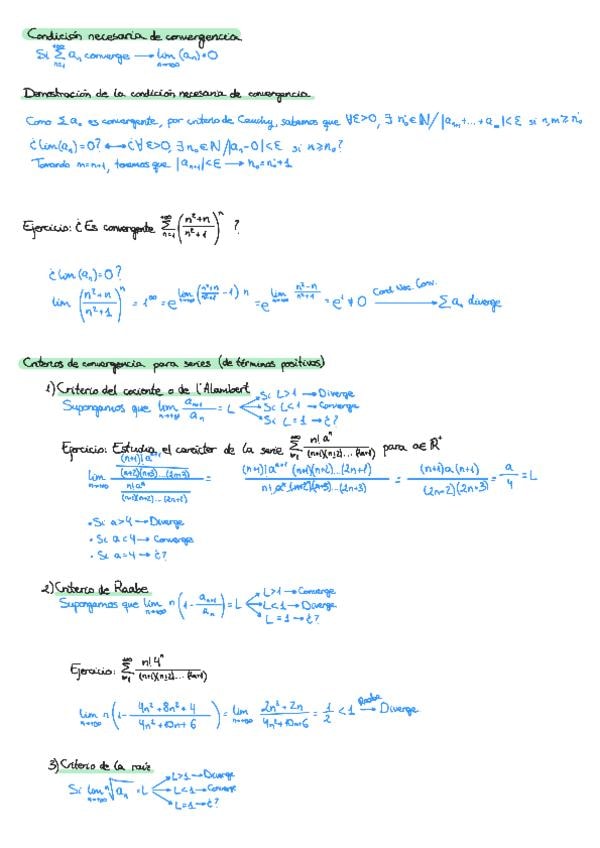 Condición necesaria de convergencia
Si $\sum_{n=1}^{+\infty} a_n$ converge $\longrightarrow \lim_{n\to+\infty} (a_n) = 0$
Demostración de la condición necesaria de convergencia
Como $\sum a_n$ es convergente, por criterio de Cauchy, sabemos que $\forall \varepsilon > 0, \exists n_0' \in \mathbb{N} / |a_{n+1} + \dots + a_m| < \varepsilon$ si $n, m \geq n_0'$
¿$\lim (a_n) = 0$? $\longleftrightarrow$ ¿$\forall \varepsilon > 0, \exists n_0 \in \mathbb{N} / |a_n - 0| < \varepsilon$ si $n \geq n_0$?
Tomando $m = n+1$, tenemos que $|a_{n+1}| < \varepsilon \longrightarrow n_0 = n_0' + 1$
Ejercicio: ¿Es convergente $\sum_{n=1}^{+\infty} \left(\frac{n^2+n}{n^2+1}\right)^n$ ?
¿$\lim (a_n) = 0$?
$\lim \left(\frac{n^2+n}{n^2+1}\right)^n = 1^\infty = e^{\lim_{n\to+\infty} \left(\frac{n^2+n}{n^2+1} - 1\right) n} = e^{\lim_{n\to+\infty} \frac{n^2-n}{n^2+1}} = e^1 \neq 0 \xrightarrow{\text{Cond. Nec. Conv.}} \sum a_n$ diverge
Criterios de convergencia para series (de términos positivos)
1) Criterio del cociente o de l'Alambert
Supongamos que $\lim_{n\to+\infty} \frac{a_{n+1}}{a_n} = L$
Si L > 1 → Diverge
Si L < 1 → Converge
Si L = 1 → ¿?
Ejercicio: Estudia el carácter de la serie $\sum_{n=1}^{+\infty} \frac{n! a^n}{(n+1)(n+2)\dots(2n+1)}$ para $a \in \mathbb{R}^+$
$\lim_{n\to+\infty} \frac{\frac{(n+1)! a^{n+1}}{(n+2)(n+3)\dots(2n+3)}}{\frac{n! a^n}{(n+1)(n+2)\dots(2n+1)}} = \frac{(n+1)! a^{n+1} (n+1)(n+2)\dots(2n+1)}{n! a^n (n+2)(n+3)\dots(2n+3)} = \frac{(n+1) a (n+1)}{(2n+2)(2n+3)} = \frac{a}{4} = L$
• Si a > 4 → Diverge
• Si a < 4 → Converge
• Si a = 4 → ¿?
2) Criterio de Raabe
Supongamos que $\lim_{n\to+\infty} n \left(1 - \frac{a_{n+1}}{a_n}\right) = L$
L > 1 → Converge
L < 1 → Diverge
L = 1 → ¿?
Ejercicio: $\sum_{n=1}^{+\infty} \frac{n! 4^n}{(n+1)(n+2)\dots(2n+1)}$
$\lim_{n\to+\infty} n \left(1 - \frac{4n^2+8n+4}{4n^2+10n+6}\right) = \lim_{n\to+\infty} \frac{2n^2+2n}{4n^2+10n+6} = \frac{1}{2} < 1 \xrightarrow{\text{Raabe}}$ Diverge
3) Criterio de la raíz
Si $\lim_{n\to+\infty} \sqrt[n]{a_n} = L$
L > 1 → Diverge
L < 1 → Converge
L = 1 → ¿?